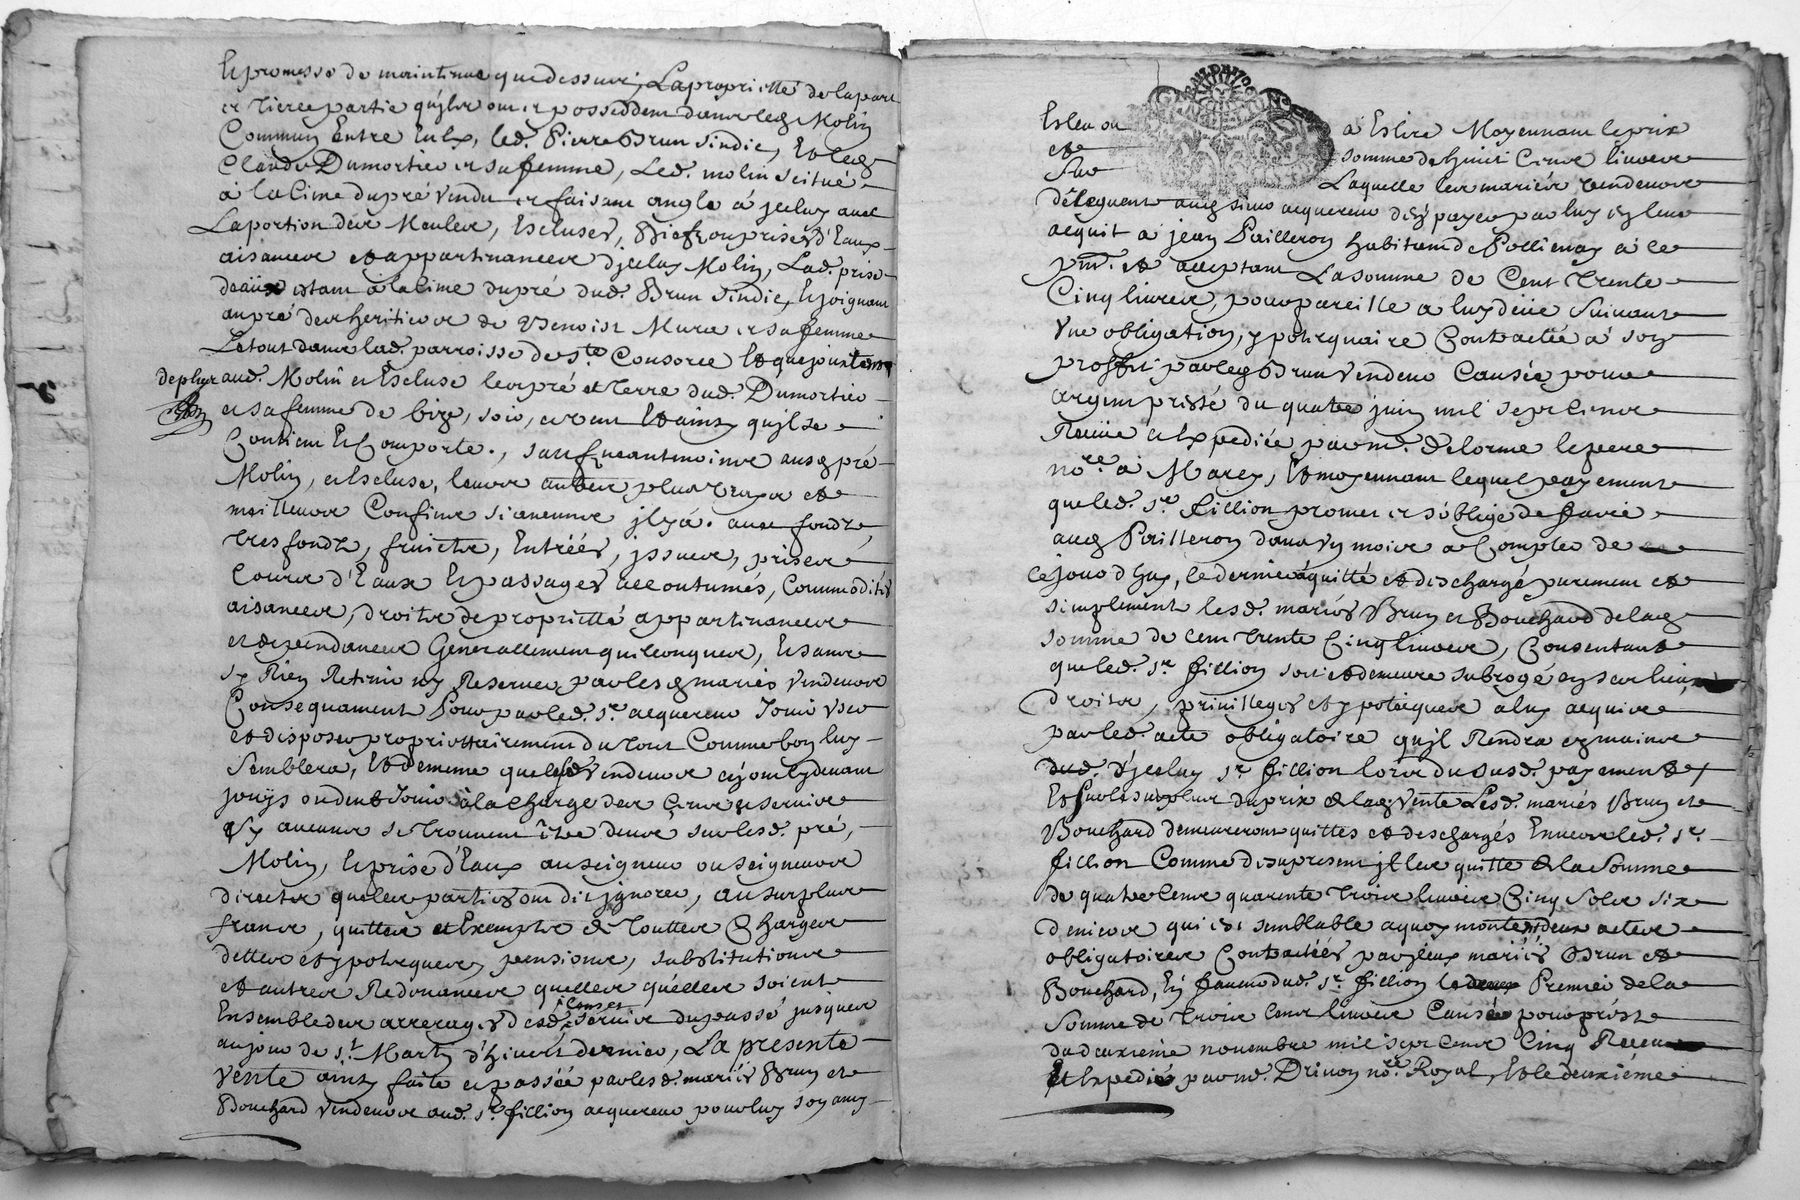 Et promesse de maintenue que dessus, La proprietté de la part
et tierce partie qu'ylz ont et possèddent dans led. Molin
Commun Entre Eulx, led. Pierre Brun sindic, Et led.
Claude Dumortier et sa femme, Led. molin scitué
à la Cime du pré vendu et faisant angle à jceluy avec
La portion des Meules, Escluses, Biefz ou prises d'Eaux
aisances et appartinances d'jceluy Molin, Lad. prise
deaüe estant à la Cime du pré dud. Brun sindic, Et joignant
au pré des heritiers de Benoist Mure et sa femme
Le tout dans lad. parroisse de ste. Consorce Et que jouxtent
de plus aud. Molin et Escluse les pré et terre dud. Dumortier
et sa femme de bize, soir, et vent Et ainsy qu'jl se
Contient Et Comporte, sauf neantmoins ausd. pré
Molin, et Escluse, leurs autres plus vrays et
meilleurs Confins si aucuns jl y a. aux fondz
tresfondz, fruictz, Entréés, jssues, prises et
Cours d'Eaux Et passages accoutumés, Commodités
aisances, droitz de proprietté appartinances
et dependances Generallement quelconques, Et sans
Sy Rien Retinir ny Reserver par lesd. mariés vendeurs
Consequament Pour par led. sr. acquereur Jouir user
et disposer propriettairement du tout Comme bon luy
Semblera, Et de meme que lesd. vendeurs cy jointz devant
jouys ou deub Jouir à la charge des Cens et servis
sy aucuns se trouvent être deus sur lesd. pré,
Molin, Et prise d'Eaux au seigneur ou seigneurs
directz que les parties ont dit jgnorer, au surplus
francs, quittes et Exemptz de toutes Charges
dettes et ypotheques, pensions, substitutions
et autres Redevances quelles quélles soient
Ensemble des arrerages desd. Cens et servis du passé jusques
au jour de st. Martin d'hivert dernier, La presente
vente ainsy faite et passéé par lesd. mariés Brun et
Bouchard vendeurs aud. sr. fillion acquereur pour luy son amy
Esleu ou à Eslire Moyennant le prix
et somme de huict Cens livres
Sur Laquelle les mariés vendeurs
déleguent aud. sieur acquereur d'En payer par luy Et leur
acquit à jean Pailleron habitant de Pollienay à ce
pnt. et acceptant La somme de Cent trente
Cinq livres, pour pareille à luy düe Suivant
vne obligation, ypothequaire Contractée à son
proffit par led. Brun vendeur Causée pour
argent pretté du quatre juin mil sept Cens
Reçüe et Expediée par me. Delorme le pere
nore. à Marcy, Et moyennant lequel payement
que led. sr. Fillion promet et s'oblige de faire
aud. Pailleron dans vn mois à Compter de
Ce jourd'huy, le dernier à quitté et deschargé purement et
simplement lesd. mariés Brun et Bouchard de lad.
somme de Cent trente Cinq livres, Consentant
que led. sr. fillion soit et demeure subrogé en ses lieux
droitz, privilleges et ypoteques à luy acquis
par led. acte obligatoire qu'jl Rendra es mains
dud. d'jceluy sr. fillion lors du susd. payement
Et sur le surplus du prix de lad. vente Lesd. mariés Brun et
Bouchard demeureront quittes et deschargés Envers led. sr.
fillion Comme dès à present jl les quitte de la Somme
de quatre Cens quarente trois livres Cinq Sols Six
deniers qui est semblable à quoy montent deux actes
obligatoires Contractéés par jceux mariés Brun et
Bouchard, En faveur dud. sr. fillion le Premier de la
somme de trois Cens livres Causé pour prest
du deuxieme novembre mil sept Cens Cinq Receu
Et Expedié par me. Drivon nore. Royal, Et le deuxiéme